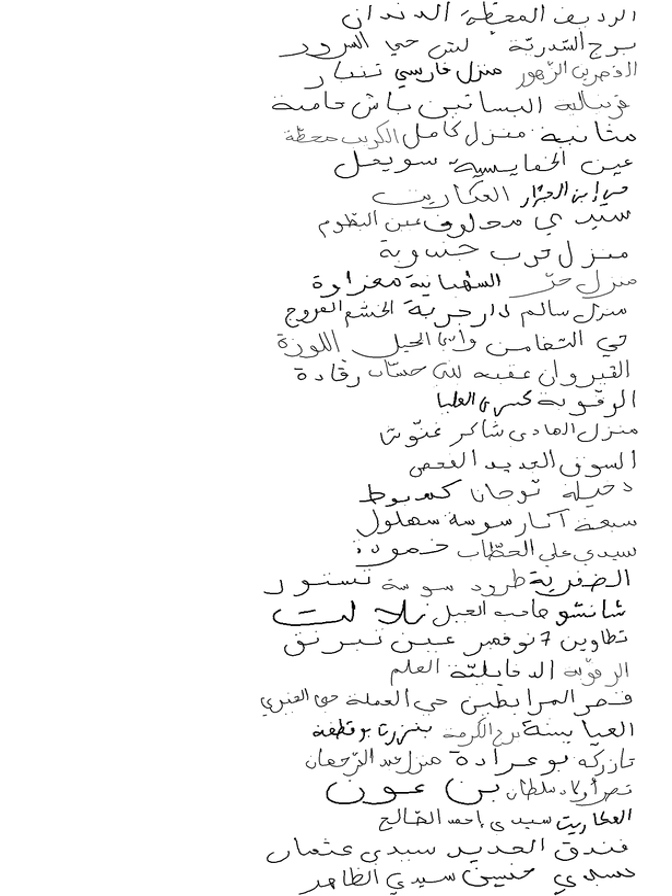 الرديف المحطة الدندان
برج السدرية حي السرور
الذهربن الزهور منزل فارسي تنبار
البساتين باش حامبة
مثانية منزل كامل الكريب محطة
عين الخمايسية سويحل
حي إبن الجزار العكاريت
سيدي مخلوف عين البطوم
منزل حرب خنبوبة
منزل حر السلمانية مغرارة
منزل سالم دار جربة الخشم الفروج
حي التضامن وادي الحيل اللوزة
القيروان عقبة حساب رقادة
الرقوبة كسرى العليا
منزل الهادي شاكر غنوش
السوق الجديد الفحص
دخيلة توجان كعبوط
سبعة آبار سوسة سهلول
سيدي علي الحطاب حمودة
الظفرية طرود سوسة تستور
شانشو حاجب الجبل تلالت
تطاوين 7 نوفمبر عين تبرنق
الرقوبة الدخايلية العلم
قصر المرابطين حي العملة حي العنبري
العيايشة برج الكرمة بنزرت بوقطفة
تازركة بوعرادة منزل عبد الرحمان
قصر أولاد سلطان بن عون
العكاريت سيدي احمد الصالح
فندق الجديد سيدي عثمان
سيدي حسين سيدي الظاهر